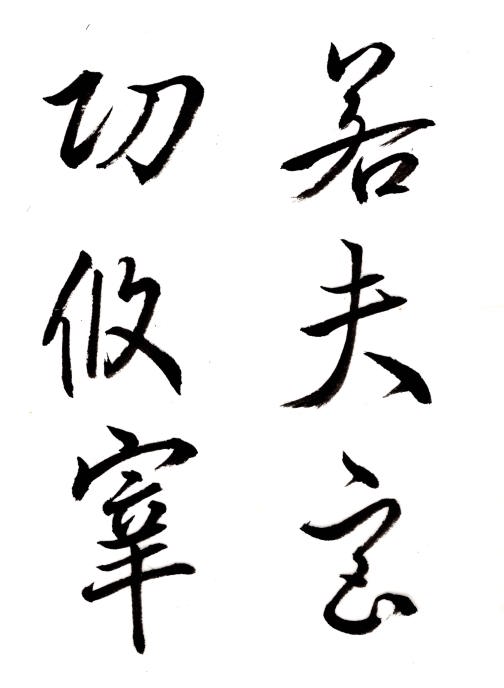 若夫
功攸宰